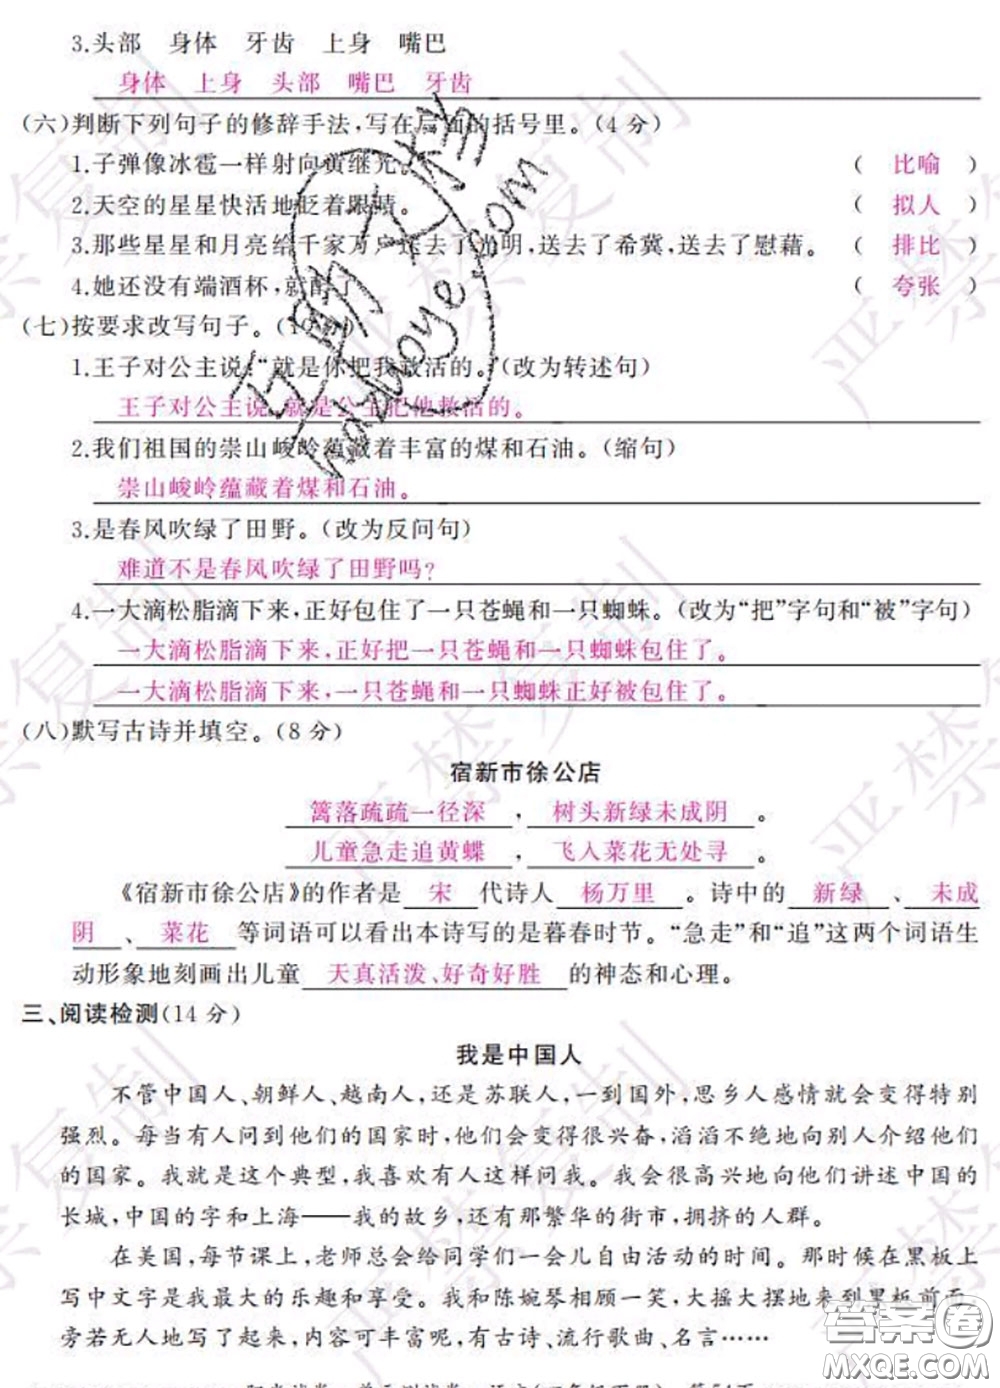 3.头部 身体 牙齿 上身 嘴巴
身体 上身 头部 嘴巴 牙齿
(六)判断下列句子的修辞手法,写在后面的括号里。(4分)
1.子弹像冰雹一样射向黄继光。 ( 比喻 )
2.天空的星星快活地眨着眼睛。 ( 拟人 )
3.那些星星和月亮给千家万户送去了光明,送去了希冀,送去了慰藉。 ( 排比 )
4.她还没有端酒杯,就醉了 ( 夸张 )
(七)按要求改写句子。(1
1.王子对公主说:“就是你把我救活的。(改为转述句)
王子对公主说,就是公主把他救活的。
2.我们祖国的崇山峻岭蕴藏着丰富的煤和石油。(缩句)
崇山峻岭蕴藏着煤和石油。
3.是春风吹绿了田野。(改为反问句)
难道不是春风吹绿了田野吗?
4.一大滴松脂滴下来,正好包住了一只苍蝇和一只蜘蛛。(改为“把”字句和“被”字句)
一大滴松脂滴下来,正好把一只苍蝇和一只蜘蛛包住了。
一大滴松脂滴下来,一只苍蝇和一只蜘蛛正好被包住了。
(八)默写古诗并填空。(8分)
宿新市徐公店
篱落疏疏一径深,树头新绿未成阴。
儿童急走追黄蝶,飞入菜花无处寻。
《宿新市徐公店》的作者是 宋 代诗人 杨万里 。诗中的 新绿 、 未成
阴 、 菜花 等词语可以看出本诗写的是暮春时节。“急走”和“追”这两个词语生
动形象地刻画出儿童 天真活泼、好奇好胜 的神态和心理。
三、阅读检测(14分)
我是中国人
不管中国人、朝鲜人、越南人,还是苏联人,一到国外,思乡人感情就会变得特别
强烈。每当有人问到他们的国家时,他们会变得很兴奋,滔滔不绝地向别人介绍他们
的国家。我就是这个典型,我喜欢有人这样问我。我会很高兴地向他们讲述中国的
长城,中国的字和上海——我的故乡,还有那繁华的街市,拥挤的人群。
在美国,每节课上,老师总会给同学们一会儿自由活动的时间。那时候在黑板上
写中文字是我最大的乐趣和享受。我和陈婉琴相顾一笑,大摇大摆地来到黑板前面,
旁若无人地写了起来,内容可丰富呢,有古诗、流行歌曲、名言……
答案圈
MXQE.COM
严禁复制